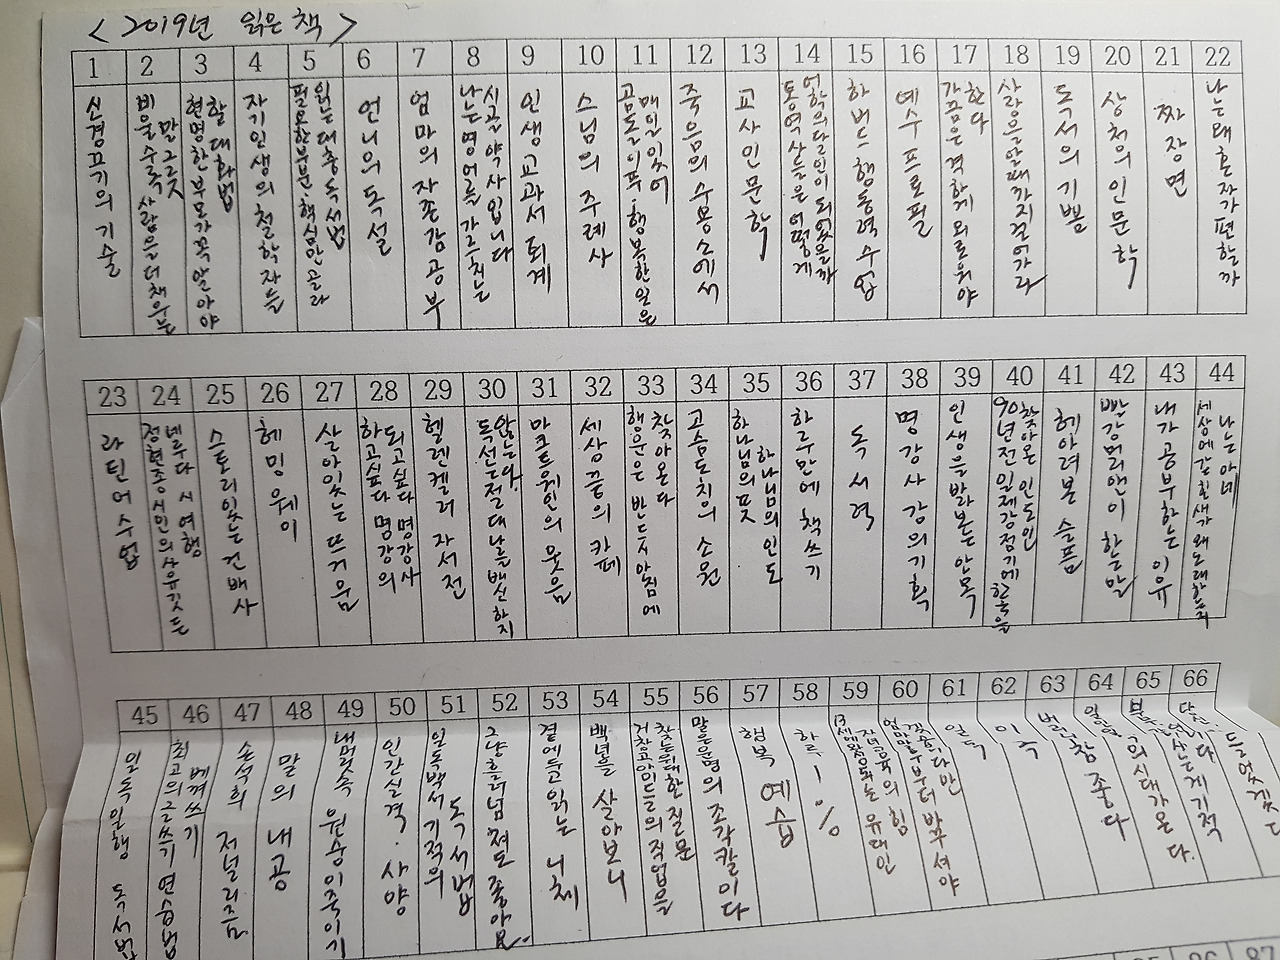 <2019년 읽은 책>
1 2 3 4 5 6 7 8 9 10 11 12 13 14 15 16 17 18 19 20 21 22
신경끄기의 기술
비울수록 사람을 더 채우는
말그릇
현명한 부모가 꼭 알아야
할 대화법
자기 인생의 철학자들
필요한 부분 핵심만 골라
읽는 대충 독서법
언니의 독설
엄마의 자존감 공부
나는 영어를 가르치는
시골약사입니다
인생교과서 퇴계
스님의 주례사
곰돌이푸, 행복한 일은
매일 있어
죽음의 수용소에서
교사인문학
통역사들은 어떻게
어학의 달인이 되었을까
하버드 행동력 수업
예수 프로필
가끔은 격하게 외로워야
한다
사랑을 알 때까지 걸어가라
독서의 기쁨
상처의 인문학
짜장면
나는 왜 혼자가 편할까
23 24 25 26 27 28 29 30 31 32 33 34 35 36 37 38 39 40 41 42 43 44
라틴어 수업
정현종 시인의 사유깃든
네루다 시 여행
스토리있는 건배사
헤밍웨이
살아있는 뜨거움
하고싶다 명강의
되고싶다 명강사
헬렌켈러 자서전
독서는 절대 나를 배신하지
않는다
마크트웨인의 웃음
세상 끝의 카페
행운은 반드시 아침에
찾아온다
고슴도치의 소원
하나님의 뜻
하나님의 인도
하루만에 책쓰기
독서력
명강사 감의 기획
인생을 바라보는 안목
90년전 일제강점기에 한국을
찾아온 인도인
헤아려본 슬픔
빨강머리앤이 하는 말
내가 공부하는 이유
세상에 갇힌 새가 왜 노래하는지
나는 아네
45 46 47 48 49 50 51 52 53 54 55 56 57 58 59 60 61 62 63 64 65 66
일독일행 독서법
최고의 글쓰기 연습법
베껴쓰기
손석희 저널리즘
말의 내공
내 머릿속 원숭이 죽이기
인간실격·사양
일독백서 기적의
독서법
그냥 흘러넘쳐도 좋아요.
곁에두고 읽는 니체
백년을 살아보니
거창고 아이들의 직업을
찾는 위대한 질문
말은 운명의 조각칼이다
행복 예습
하루 1%
13세에 완성되는 유대인
자녀교육의 힘
엄마말투부터 바꾸셔야
이다
참 좋다
의 시대가 온다.
사는게 기적
들었겠다
86 87